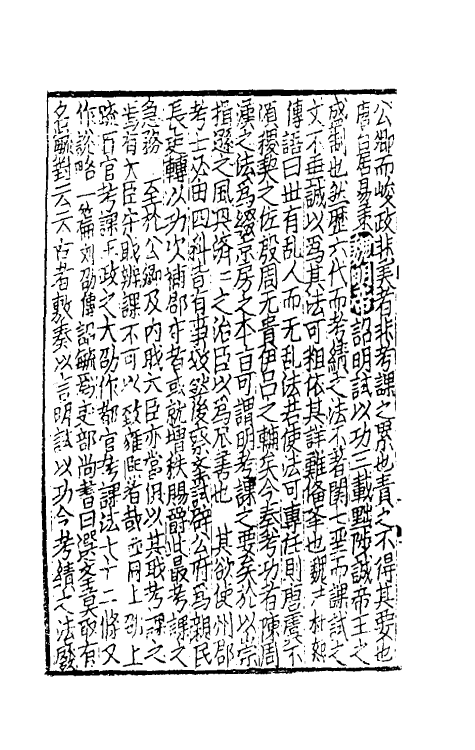 公卿而峻政非美者非考課之累也責之不得其要也
唐白居易集魏明帝詔明試以功三載黜陟誠帝王之
成制也然歴六代而考績之法不著関七聖而課試之
文不垂誠以爲其法可粗依其詳難俻举也魏士杜恕
傳語曰世有乱人而无乱法若使法可專任則唐虞不
湏稷契之佐殷周无貴伊吕之輔矣今奏考功者陳周
漢之法爲綴京房之本旨可謂明考課之要矣於以崇
揖遜之風興濟二之治臣以爲未善也其欲使州郡
考士必由四科皆有事效然後察舉試辟公府爲親民
長吏轉以功次補郡守者或就增秩賜爵此最考課之
急務至於公卿及内職大臣亦當俱以其職考課之
焉有大臣守職辨課不可以致雍熙者哉並同上劭上
疏百官考課王政之大劭作都官考課法七十二條又
作説略一篇刘劭傳詔毓爲吏部尚書曰選举莫取有
名毓對云云古者敷奏以言明試以功今考績之法廢